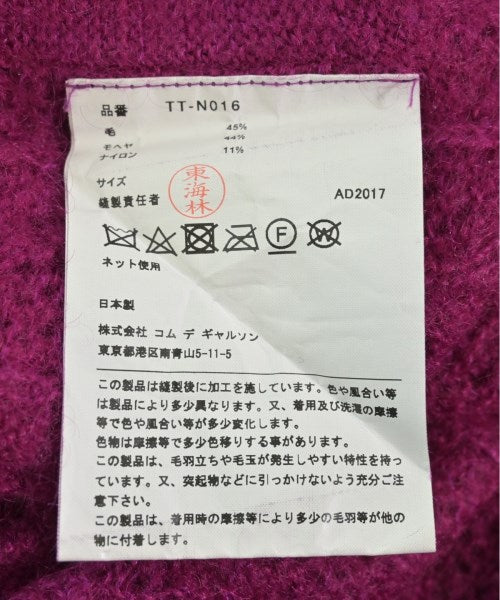 品番 TT-N016
毛 45%
モヘヤ 44%
ナイロン 11%
サイズ
縫製責任者 東海林
AD2017
F W
ネット使用
日本製
株式会社 コム デ ギャルソン
東京都港区南青山5-11-5
この製品は縫製後に加工を施しています。色や風合い等
は製品により多少異なります。又、着用及び洗濯の摩擦
等で色や風合い等が多少変化します。
色物は摩擦等で多少色移りする事があります。
この製品は、毛羽立ちや毛玉が発生しやすい特性を持っ
ています。又、突起物などに引っかけないよう充分ご注
意下さい。
この製品は、着用時の摩擦等により多少の毛羽等が他の
物に付着します。